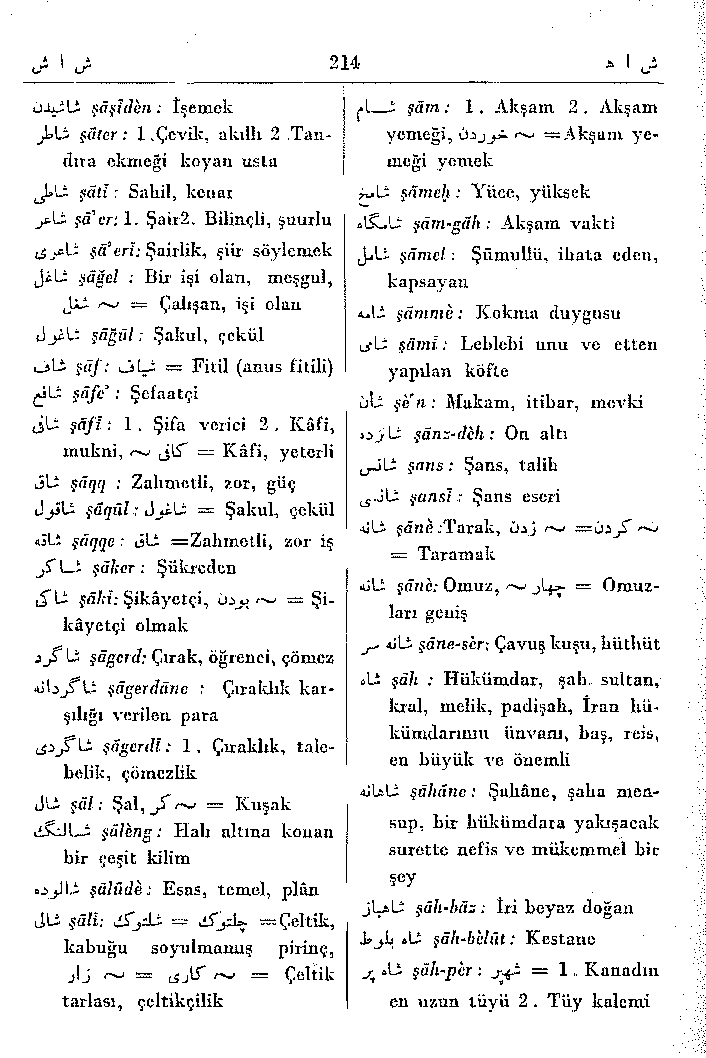 ش ا ش
214
ش ا ه
شاشیدن şāşīdèn : İşemek
شاطر şāter : 1.Çevik, akıllı 2 .Tan-
dıra ekmeği koyan usta
شاطی şātī : Sahil, kenar
شاعر şā'er: 1. Şair2. Bilinçli, şuurlu
شاعری şā'erī: Şairlik, şiir söylemek
شاغل şāğel : Bir işi olan, meşgul,
شغل ~ = Çalışan, işi olan
شاغول şāğūl : Şakul, çekül
شاف şāf : شیاف = Fitil (anus fitili)
شافع şāfe' : Şefaatçi
شافی şāfī : 1. Şifa verici 2. Kâfi,
mukni, ~ کافی = Kâfi, yeterli
شاق şāqq : Zahmetli, zor, güç
شاقول şāqūl : شاغول = Şakul, çekül
شاقه şāqqe : شاق =Zahmetli, zor iş
شاکر şāker : Şükreden
شاکی şākī: Şikâyetçi, ~ بودن = Şi-
kâyetçi olmak
شاگرد şāgerd: Çırak, öğrenci, çömez
شاگردانه şāgerdāne : Çıraklık kar-
şılığı verilen para
شاگردی şāgerdī : 1. Çıraklık, tale-
belik, çömezlik
شال şāl : Şal, ~ کمر = Kuşak
شالنگ şālèng : Halı altına konan
bir çeşit kilim
شالوده şālūdè : Esas, temel, plân
شالی şālī: شلتوک = چلتوک =Çeltik,
kabuğu soyulmamış pirinç,
زار ~ = کاری ~ = Çeltik
tarlası, çeltikçilik
شام şām : 1. Akşam 2. Akşam
yemeği, خوردن ~ =Akşam ye-
meği yemek
شامخ şāmeḫ : Yüce, yüksek
شامگاه şām-gāh : Akşam vakti
شامل şāmel : Şümullü, ihata eden,
kapsayan
شامه şāmmè : Kokma duygusu
شامی şāmī : Leblebi unu ve etten
yapılan köfte
شأن şè'n : Makam, itibar, mevki
شانزده şānz-dèh : On altı
شانس şans : Şans, talih
شانسی şansī : Şans eseri
شانه şānè :Tarak, زدن ~ =کردن ~
= Taramak
شانه şānè: Omuz, ~ چهار = Omuz-
ları geniş
شانه سر şāne-sèr: Çavuş kuşu, hüthüt
شاه şāh : Hükümdar, şah, sultan,
kral, melik, padişah, İran hü-
kümdarının ünvanı, baş, reis,
en büyük ve önemli
شاهانه şāhāne : Şahâne, şaha men-
sup, bir hükümdara yakışacak
surette nefis ve mükemmel bir
şey
شاهباز şāh-bāz : İri beyaz doğan
شاه بلوط şāh-bèlūt : Kestane
شاه پر şāh-pèr : شهپر = 1. Kanadın
en uzun tüyü 2. Tüy kalemi